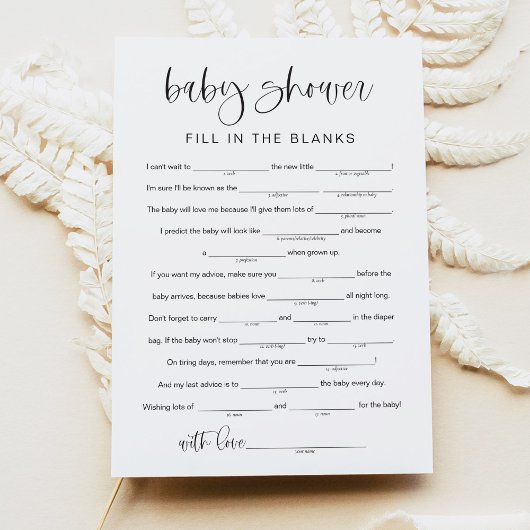 baby shower
FILL IN THE BLANKS
I can't wait to ____________ the new little ____________!
1. verb 2. fruit or vegetable
I'm sure I'll be known as the ____________ ____________.
3. adjective 4. relationship to baby
The baby will love me because I'll give them lots of ____________.
5. plural noun
I predict the baby will look like ____________ and become
6. parent/relative/celebrity
a ____________ when grown up.
7. profession
If you want my advice, make sure you ____________ before the
8. verb
baby arrives, because babies love ____________ all night long.
9. verb (-ing)
Don't forget to carry ____________ and ____________ in the diaper
10. noun 11. noun
bag. If the baby won't stop ____________ try to ____________.
12. verb (-ing) 13. verb
On tiring days, remember that you are ____________!
14. adjective
And my last advice is to ____________ the baby every day.
15. verb
Wishing lots of ____________ and ____________ for the baby!
16. noun 17. noun
with love____________
your name